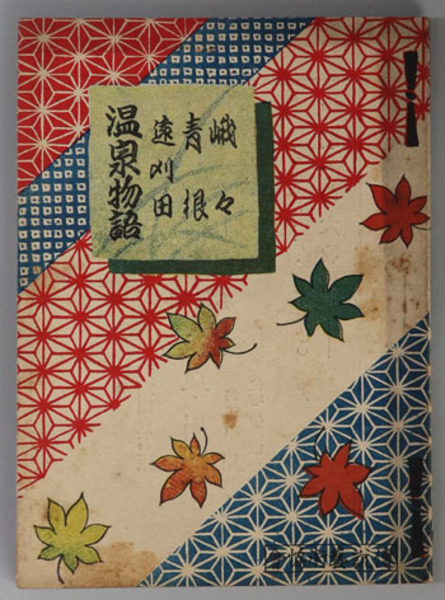 峨々
青根
遠刈田
温泉物語